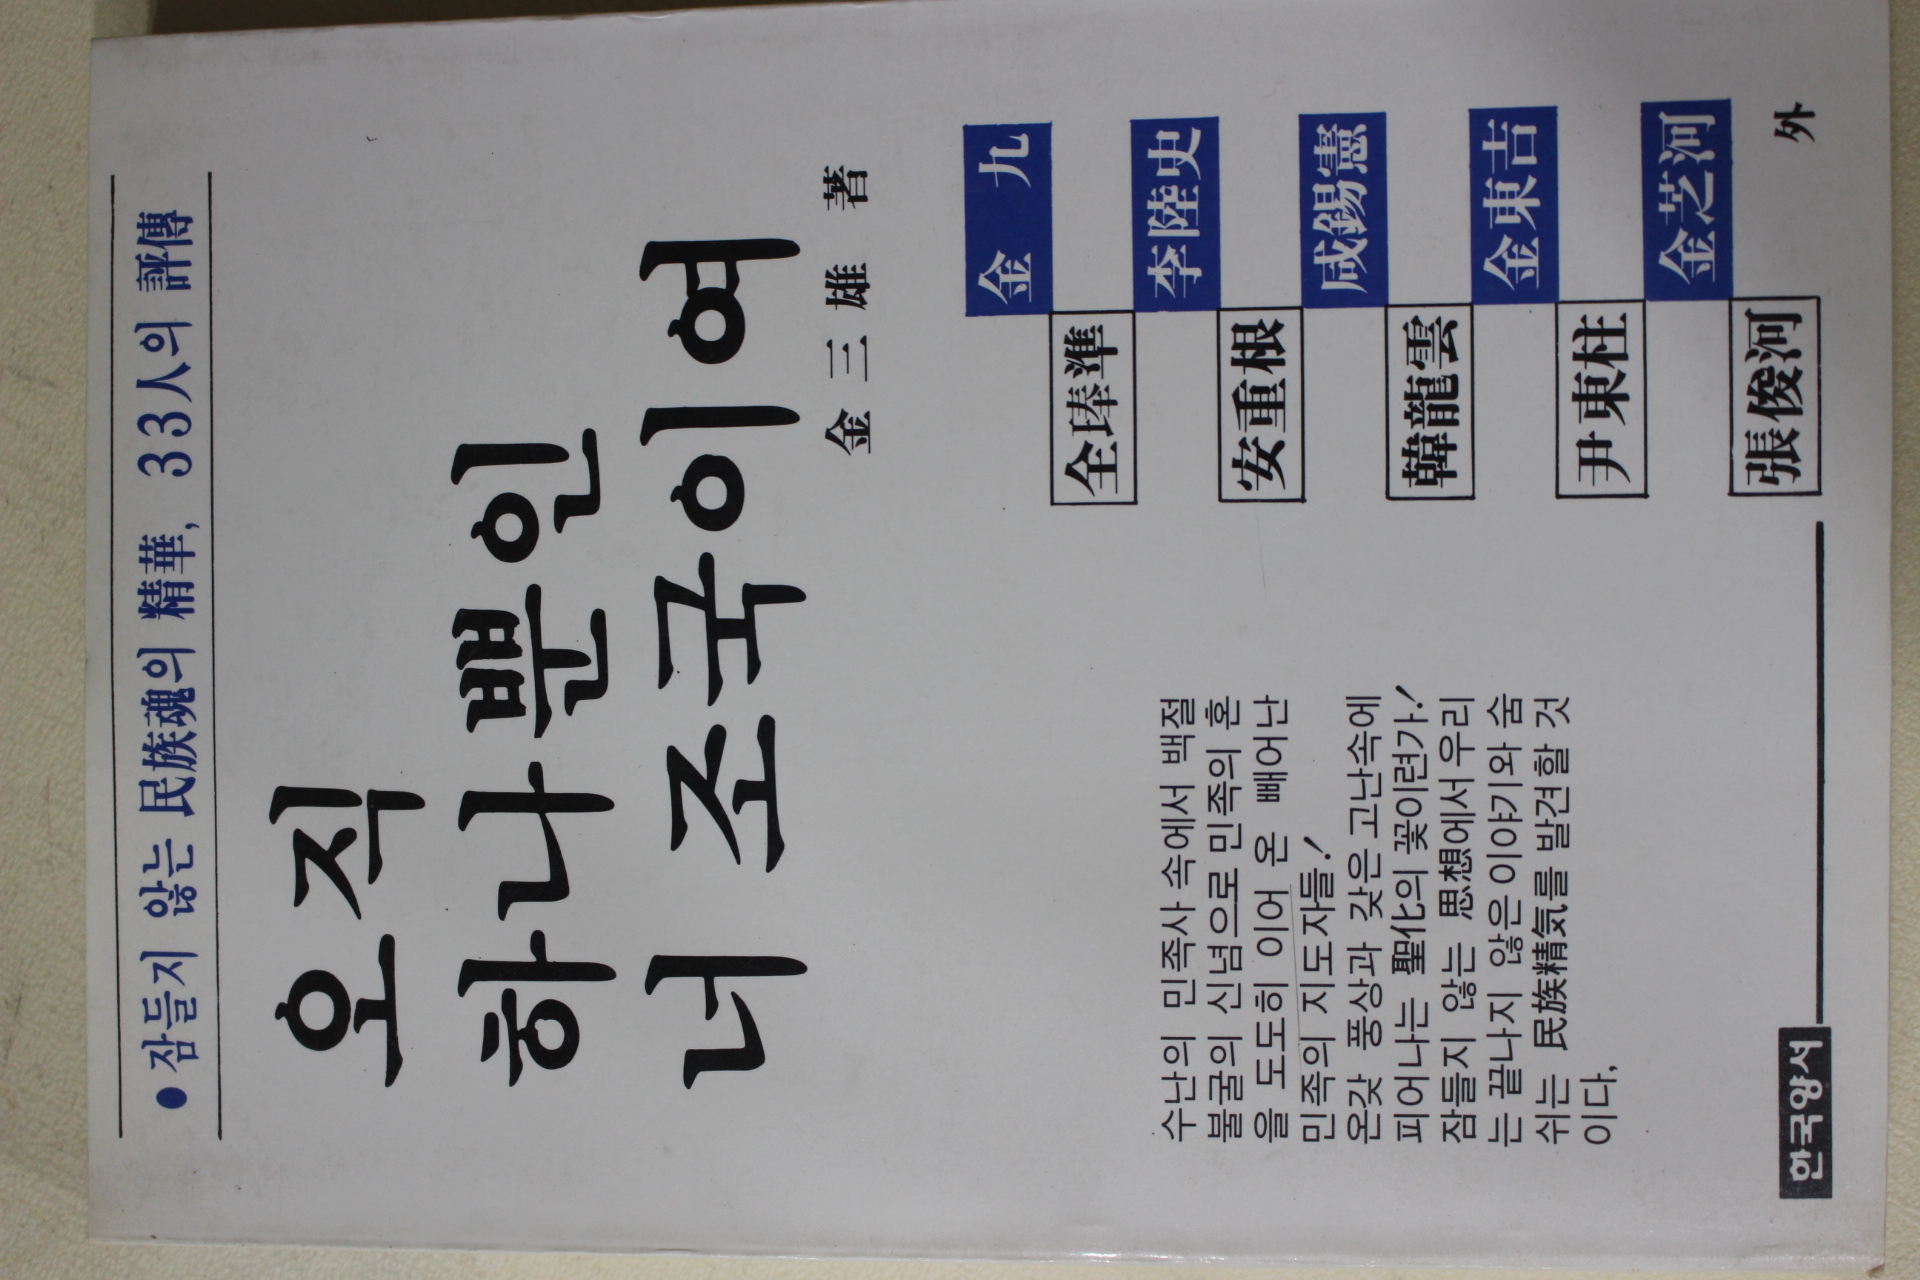 ● 잠들지 않는 民族魂의 精華, 33人의 評傳
오직
하나뿐인
너 조국이여
金三雄 著
金 九
全琫準
李陸史
安重根
咸錫憲
韓龍雲
金東吉
尹東柱
金芝河
張俊河
外
수난의 민족사 속에서 백절
불굴의 신념으로 민족의 혼
을 도도히 이어 온 빼어난
민족의 지도자들!
온갖 풍상과 갖은 고난속에
피어나는 聖化의 꽃이련가!
잠들지 않는 思想에서 우리
는 끝나지 않은 이야기와 숨
쉬는 民族精気를 발견할 것
이다,
한국양서